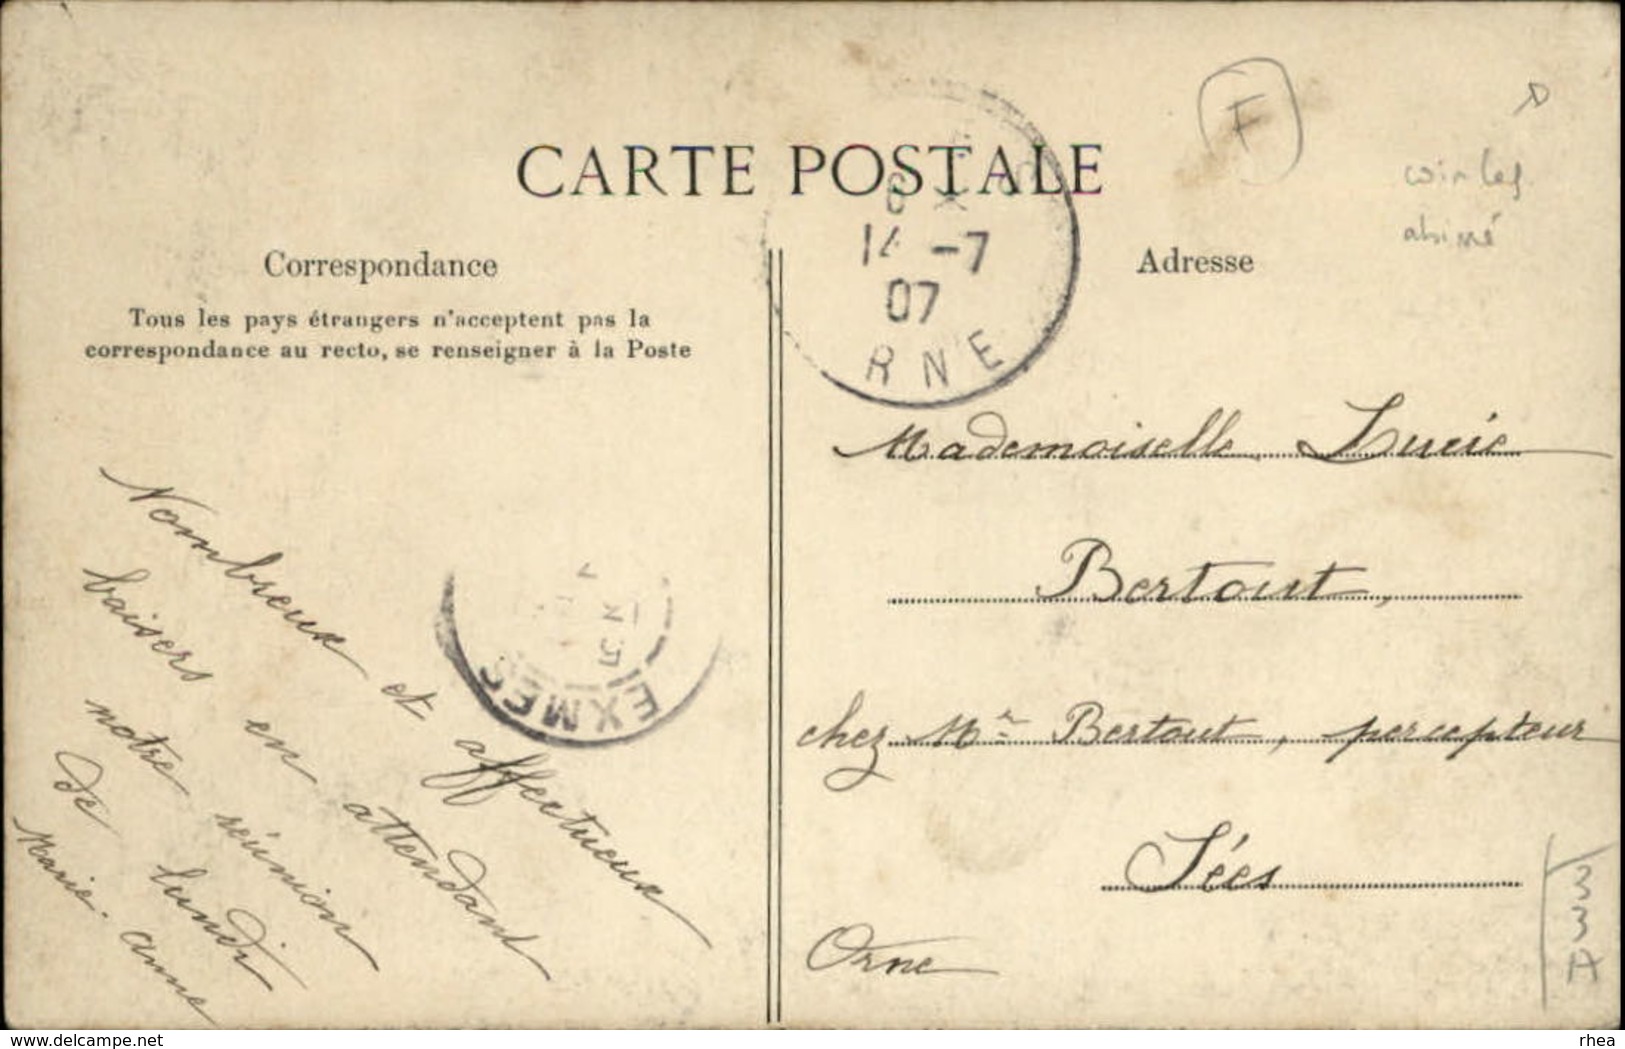 CARTE POSTALE
F
coin leg
abimé
6
14 -7
07
RNE
Correspondance
Tous les pays étrangers n'acceptent pas la
correspondance au recto, se renseigner à la Poste
Nombreux et affectueux
baisers en attendant
notre réunion
de lundi
Marie. anne
EXMES
Adresse
Mademoiselle Lucie
Bertout,
chez Mr Bertout, percepteur
Sées
Orne
33A
www.delcampe.net
rhea